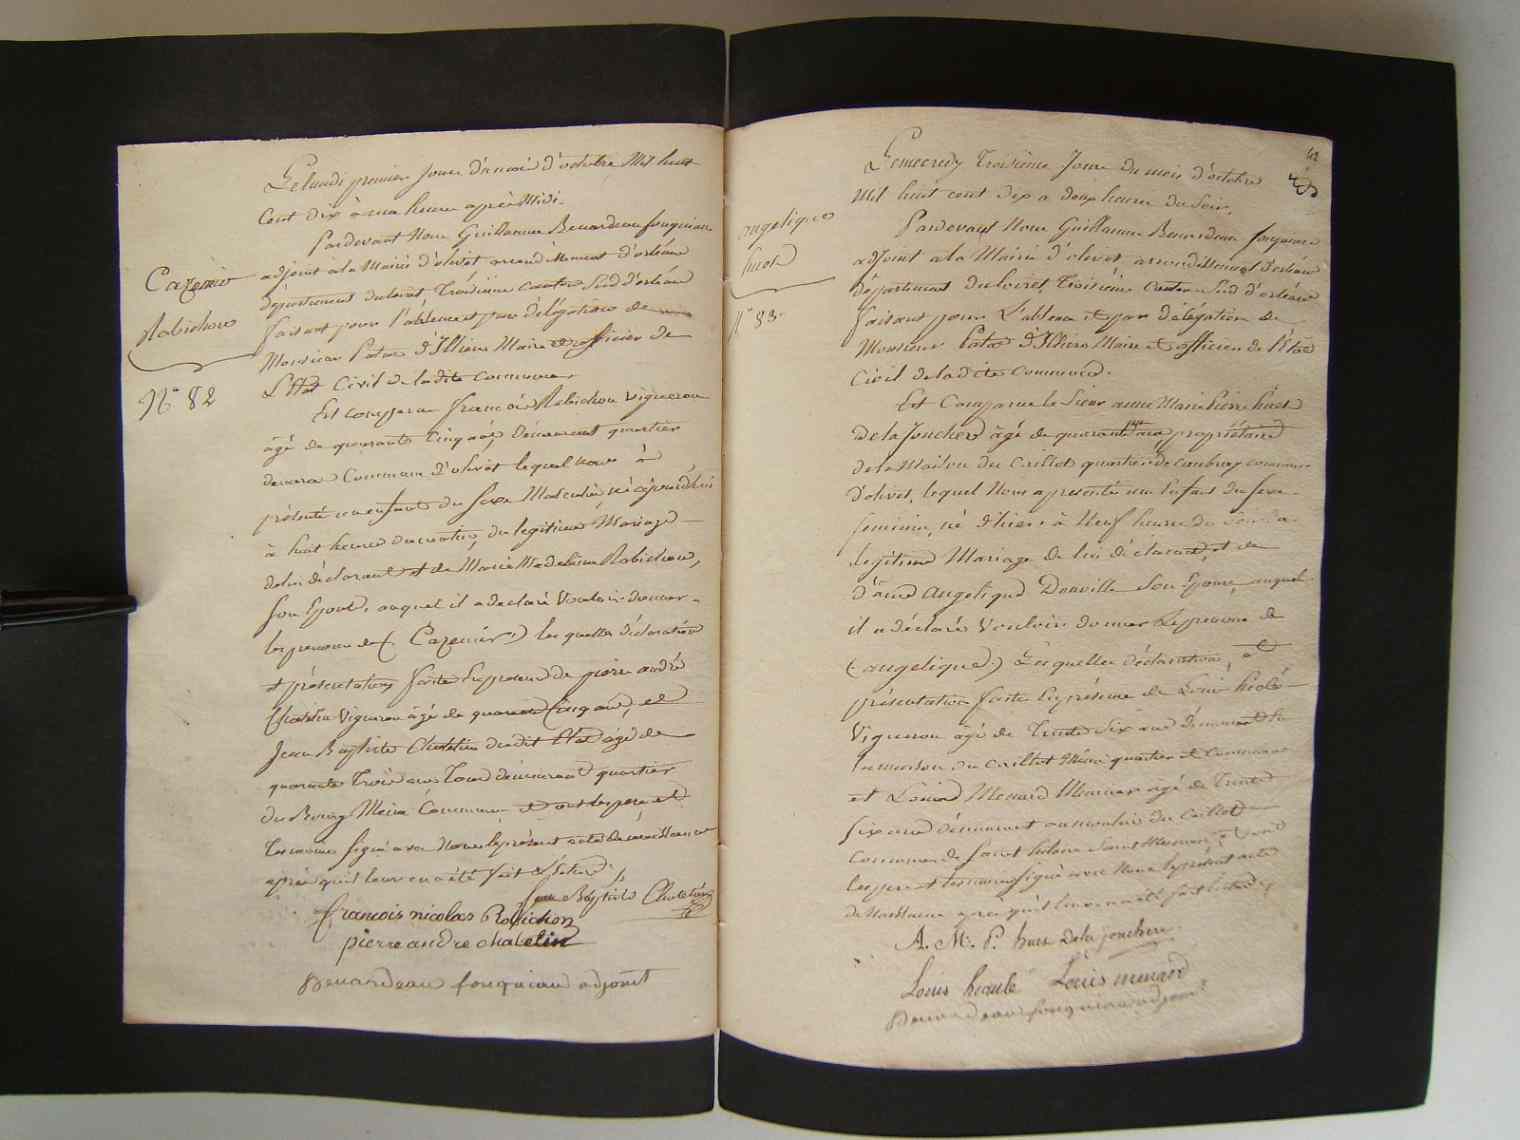 Le lundi premier jour du mois d'octobre Mil huit
Cent dix à une heure après Midi.
Pardevant Nous Guillaume Benardeau fouqueau
adjoint à la Mairie d'olivet arrondissement d'orléans
département du loiret Troisième Canton Sud d'orléans
faisant pour l'absence et par délégation de
Monsieur Patas d'Illiers Maire et officier de
L'Etat Civil de la dite Commune.
Cazemir
Robichon
N° 82
Est comparu françois Robichon vigneron
âgé de quarante Cinq ans, demeurant quartier
Commune d'olivet lequel nous à
présenté un enfant du Sexe Masculin né aujourd'hui
à huit heures du matin, du legitime Mariage
de lui déclarant et de Marie Madeleine Robichon,
Son Epouse, auquel il a declaré Vouloir donner
les prenoms de (Cazemir) les quelles déclaration
et présentation faite En présence de pierre andré
Chatelin Vigneron âgé de quarante Cinq ans, et
Jean Baptiste Chatelin du dit Etat agé de
quarante Trois ans Tous demeurant quartier
du Bourg Même Commune et ont les pere et
temoins signé avec Nous le présent acte de naissance
après qu'il leur en a été fait Lecture.
Jean Baptiste Chatelin
francois nicolas Robichon
pierre andre chatelin
Benardeau fouqueau adjoint
42
Le mecredy Troisième Jour du mois d'octobre
Mil huit cent dix a deux heures du Soir.
angelique
huet
N° 83.
Pardevant Nous Guillaume Benardeau fouqueau
adjoint a la Mairie d'olivet arrondissement d'orléans
département du loiret Troisième Canton Sud d'orléans
faisant pour L'absence et par délégation de
Monsieur Patas d'Illiers Maire et officier de l'Etat
Civil de la dite Commune.
Est Comparu le Sieur anne Marie Pierre huet
de la Jouchere âgé de quarante ans propriétaire
de la Maison du Caillot quartier de Coubray commune
d'olivet, lequel Nous a presenté un Enfant du Sexe
feminin, né d'hier à Neuf heures du Soir du
legitime Mariage de lui déclarant, et de
d'anne Angelique Donville Son Epouse, auquel
il a déclaré Vouloir donner le prenom de
(angelique.) Lesquelles déclaration, et
présentation faite En présence de Louis hiolé
Vigneron âgé de Trente Six ans demeurant
la maison du Caillot Même quartier et Commune
et Louis Menard Meunier âgé de Trente
Six ans demeurant au moulin du Caillot
Commune de Saint hilaire Saint Mesmin, et ont
les pere et temoins signé avec Nous le présent acte
de Naissance après qu'il leur en a été fait Lecture
A. M. P. huet de la jouchere
Louis Menard
Benardeau fouqueau adjoint